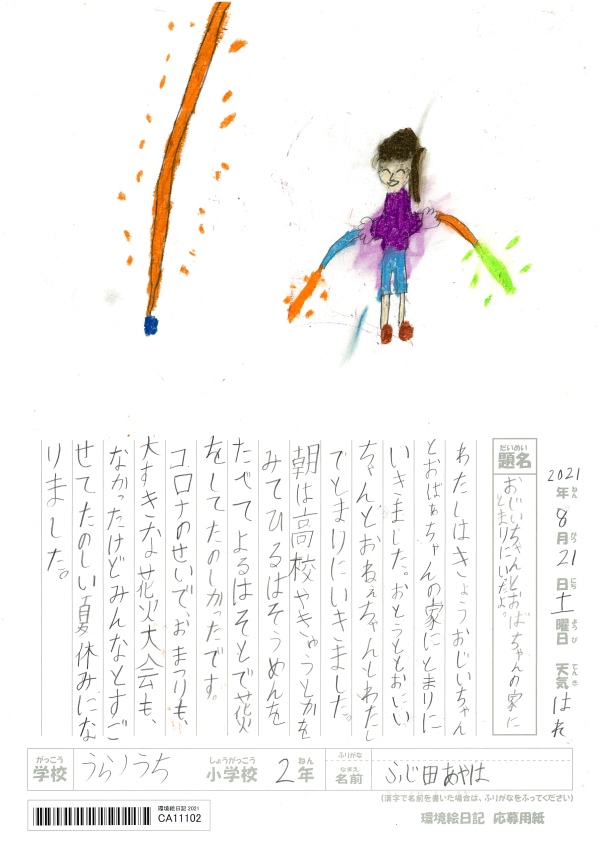 2021年ねん 8月がつ 21日にち 土曜日ようび 天気てんき はれ
だいめい
題名
おじいちゃんとおばちゃんの家に
とまりにいたよ。
わたしはきょうおじいちゃん
とおばぁちゃんの家にとまりに
いきました。おとうととおにいい
ちゃんとおねぇちゃんとわたし
でとまりにいきました。
朝は高校やきゅうとかを
みてひるはそうめんを
たべてよるはそとで花火
をしてたのしかったです。
コロナのせいで、おまつりも、
大すきな花火大会も、
なかったけどみんなとすご
せてたのしい夏休みにな
りました。
がっこう
学校
うらりうち
しょうがっこう
小学校
2年ねん
ふりがな
なまえ
名前
ふじ田あやは
(漢字で名前を書いた場合は、ふりがなをふってください)
環境絵日記 応募用紙
環境絵日記 2021
CA11102